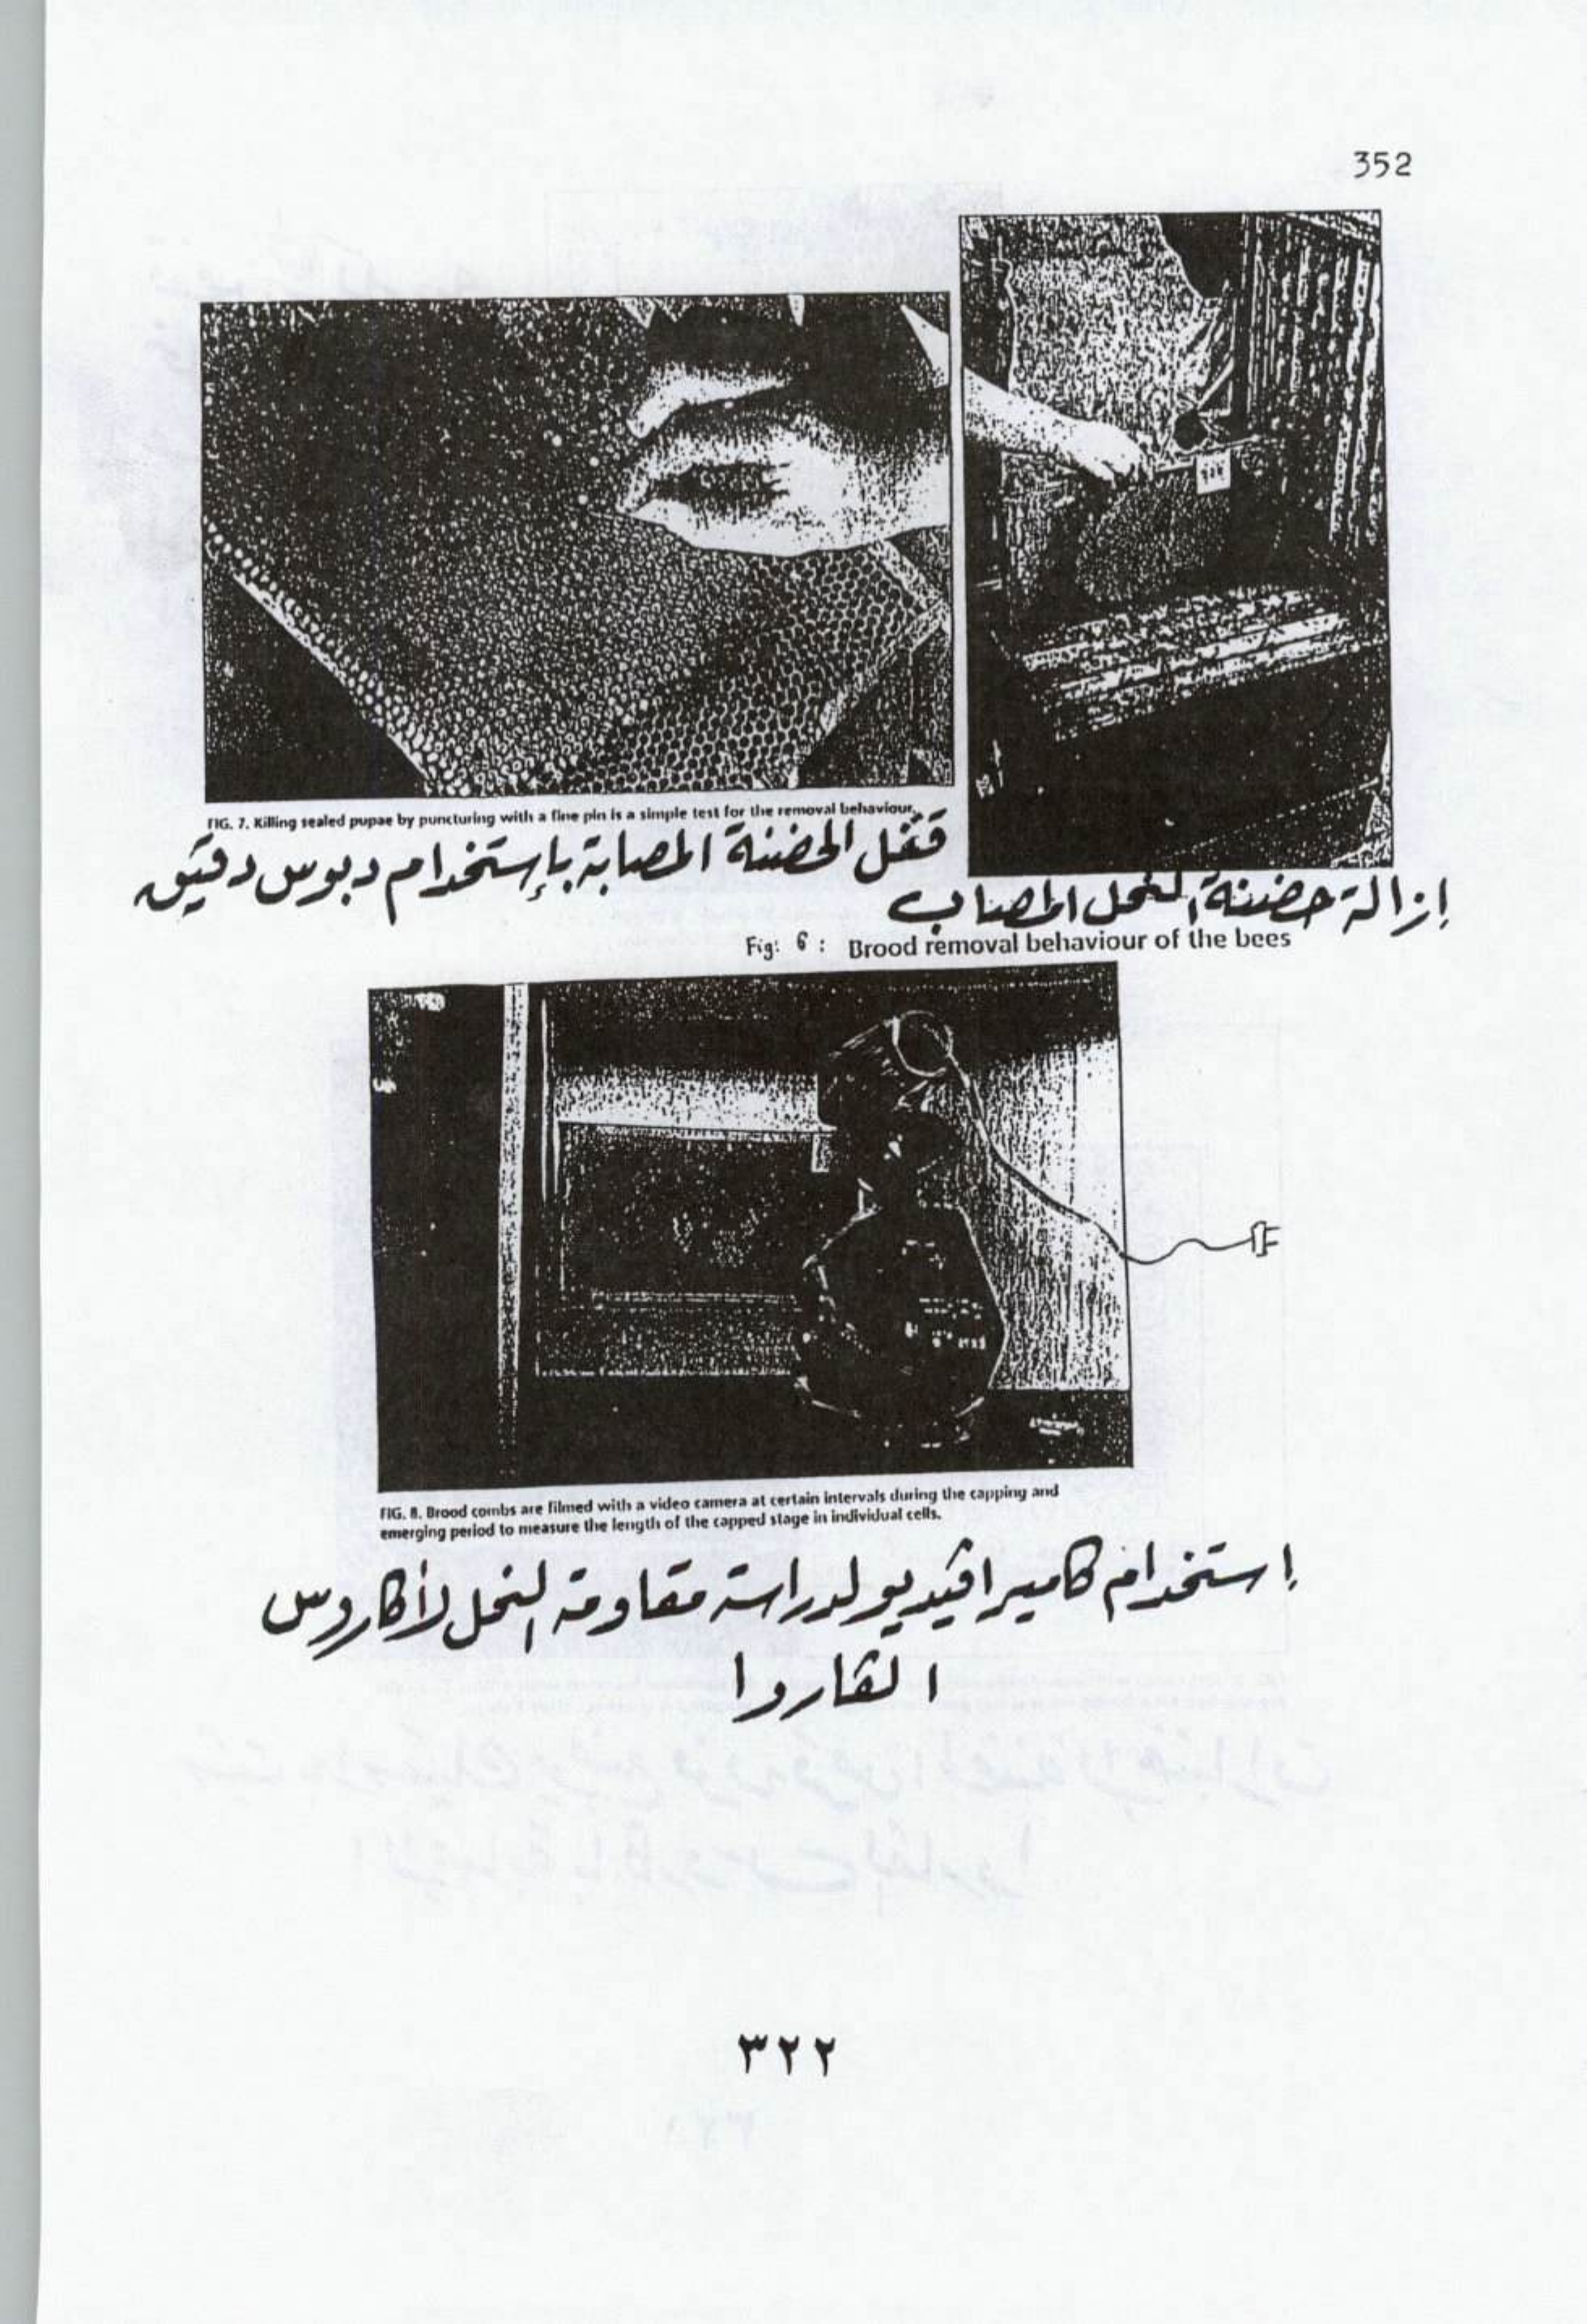 352
FIG. 7. Killing sealed pupae by puncturing with a fine pin is a simple test for the removal behaviour.
قتل الحضنة المصابة بإستخدام دبوس دقيق
إزالة حضنة النحل المصاب
Fig: 6 : Brood removal behaviour of the bees
FIG. 8. Brood combs are filmed with a video camera at certain intervals during the capping and
emerging period to measure the length of the capped stage in individual cells.
إستخدام كاميرا فيديو لدراسة مقاومة النحل لأكاروس
الفاروا
٣٢٢